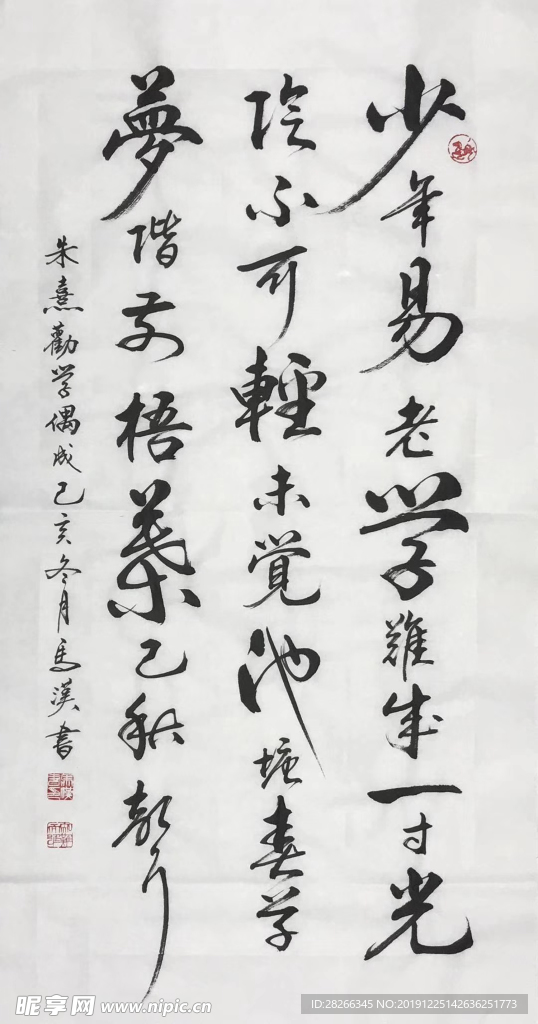 少年易老学難成一寸光
陰不可輕未覚池塘春草
夢階前梧葉已秋聲
朱熹勸学偶成己亥冬月馬漢書
昵享网 www.nipic.cn
ID:28266345 NO:20191225142636251773